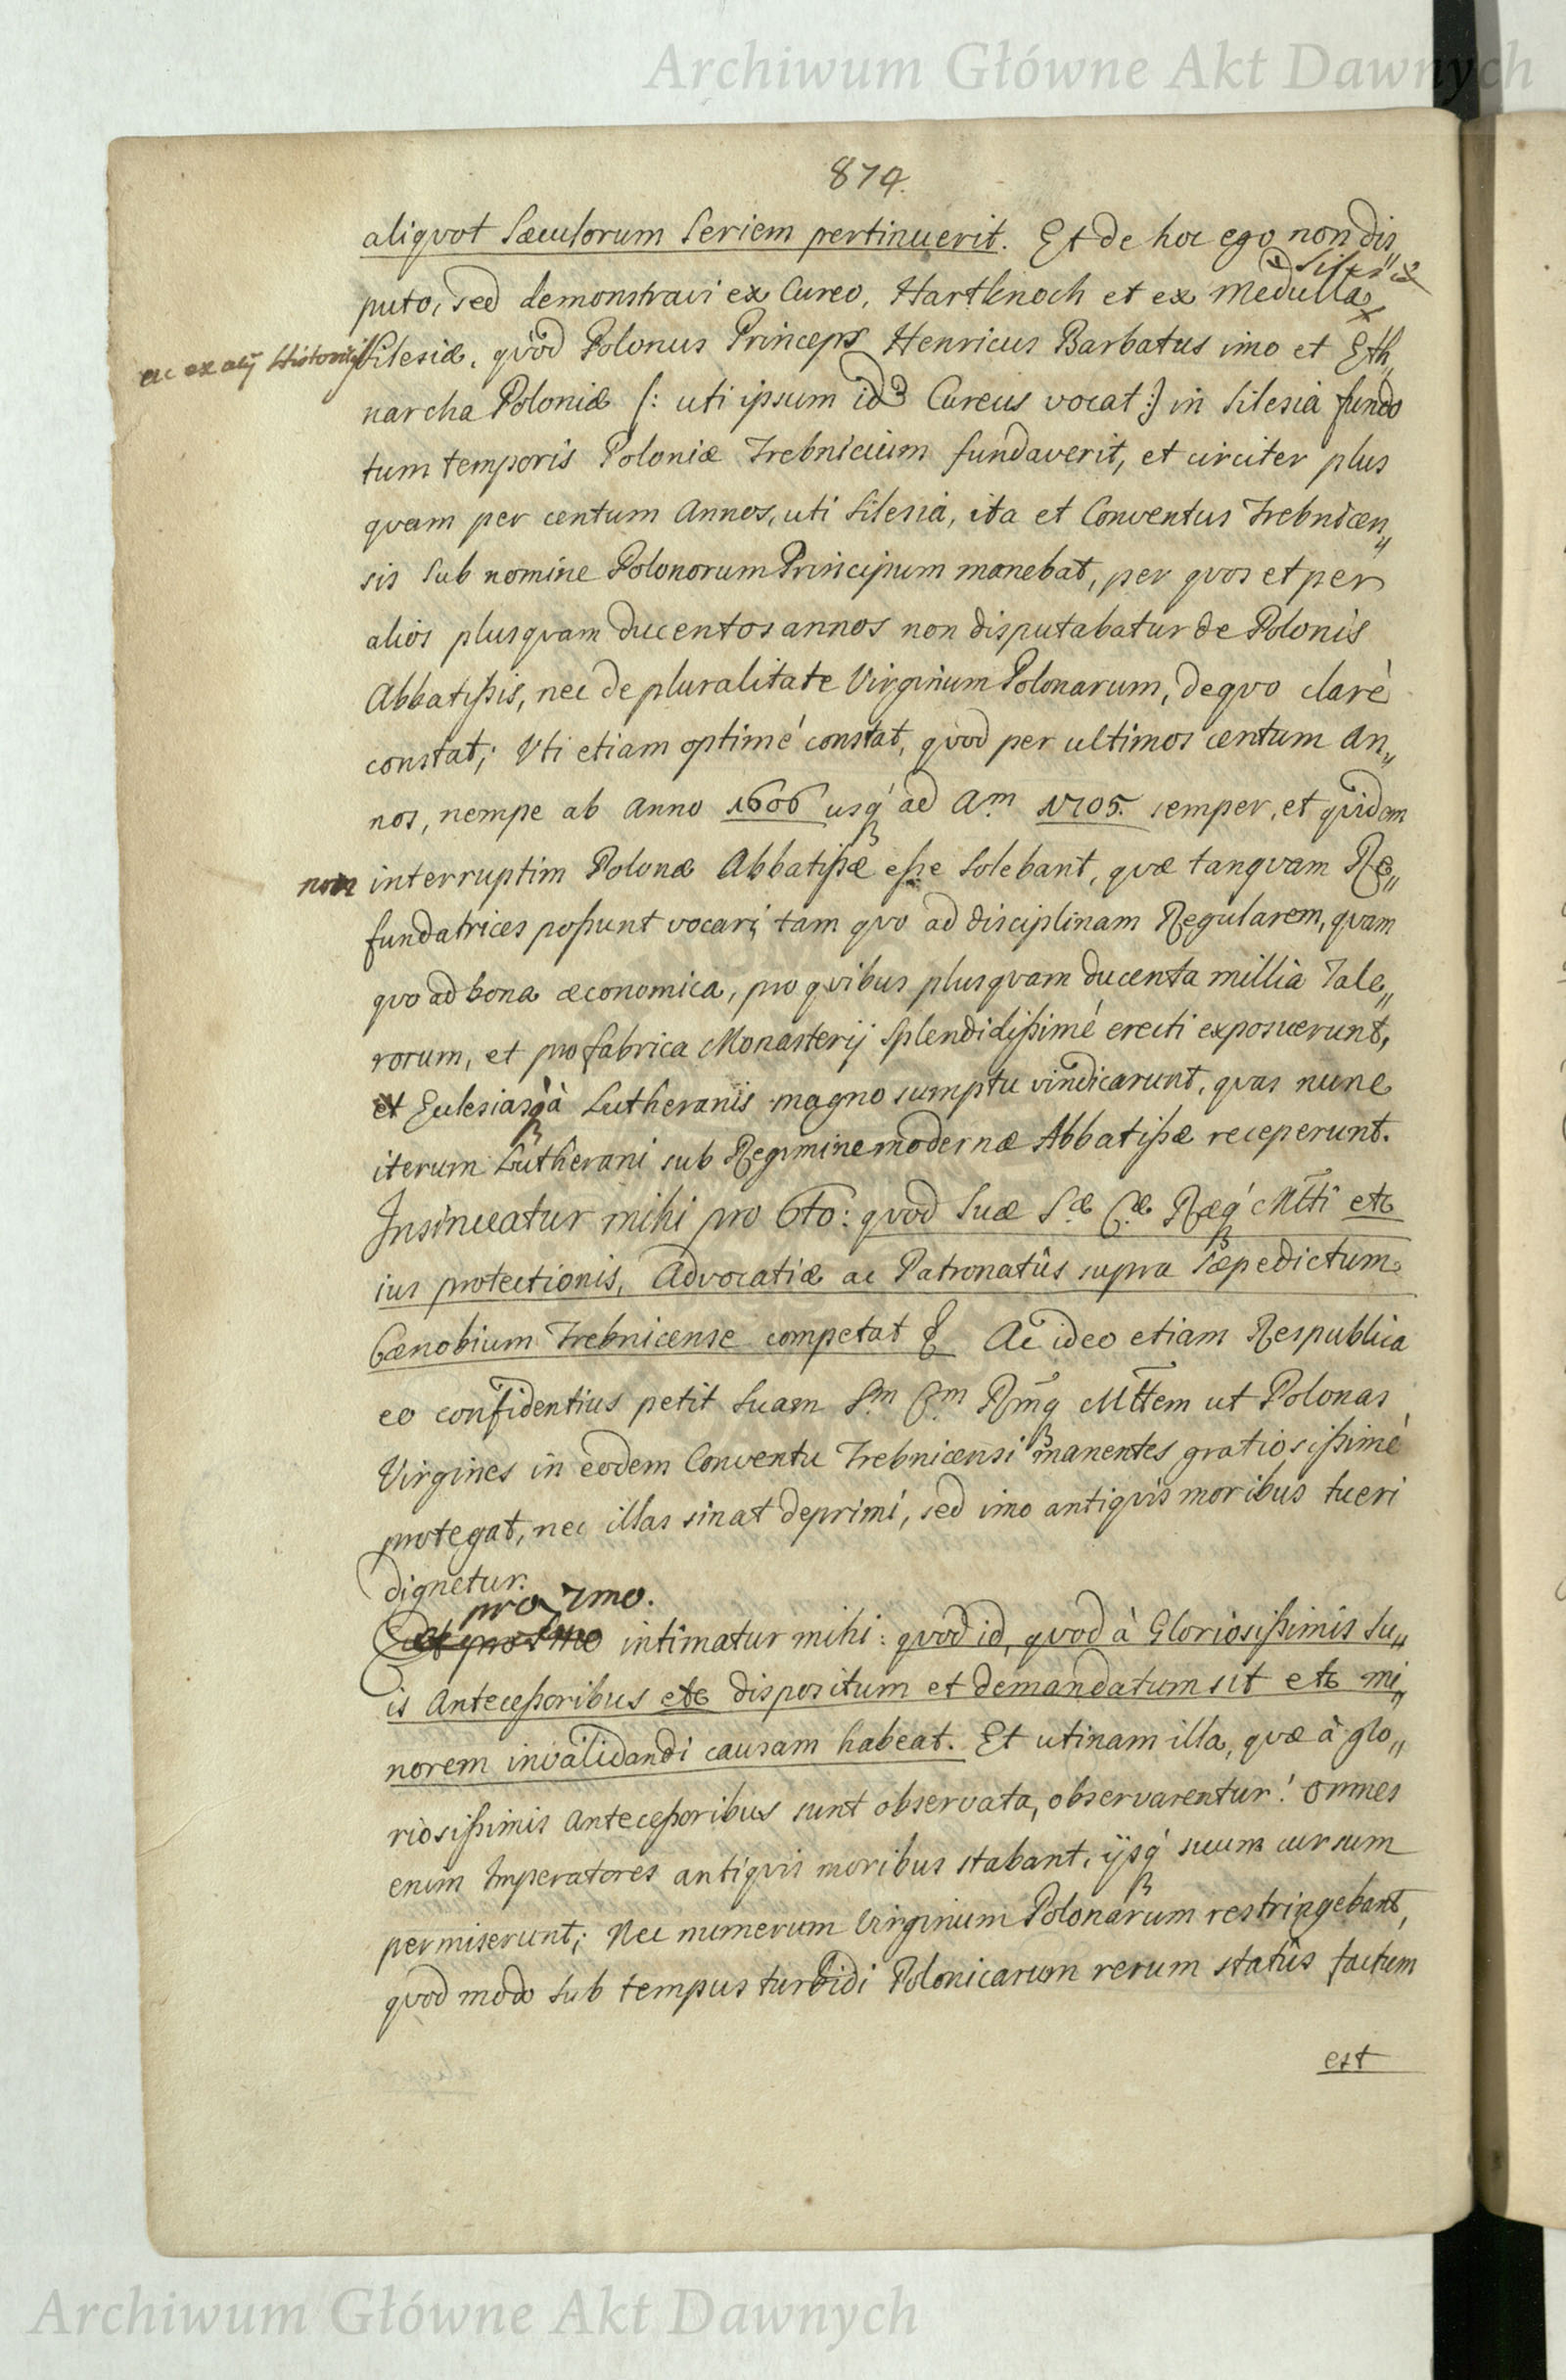 Archiwum Główne Akt Dawnych
874.
aliqvot Sæculorum Seriem pertinuerit. Et de hoc ego non dis„
puto, sed demonstravi ex Cureo, Hartknoch et ex Medulla
Silesiæ
ac ex alijs Historicis
Silesiæ, qvòd Polonus Princeps Henricus Barbatus imo et Eth„
narcha Poloniæ [: uti ipsum id Cureus vocat :] in Silesia fundo
tum temporis Poloniæ Trebnicium fundaverit, et circiter plus
qvam per centum Annos, uti Silesia, ita et Conventus Trebnicen„
sis sub nomine Polonorum Principum manebat, per qvos et per
alios plusqvam ducentos annos non disputabatur de Polonis
Abbatißis, nec de pluralitate Virginum Polonarum, de qvo clarè
constat; Uti etiam optimè constat, qvod per ultimos centum An„
nos, nempe ab Anno 1606 usq' ad A.m 1705. semper, et qvidem
non interruptim Polonæ Abbatißæ eße solebant, qvæ tanqvam Re„
fundatrices poßunt vocari, tam qvo ad disciplinam Regularem, qvam
qvo ad bona æconomica, pro qvibus plusqvam ducenta millia Tale„
rorum, et pro fabrica Monasterij splendidißimè erecti exposuerunt,
et Eclesiasq' à Lutheranis magno sumptu vindicarunt, qvas nunc
iterum Lutherani sub Regimine modernæ Abbatißæ receperunt.
Insinuatur mihi pro 6to: qvod Suæ S.æ C.æ Ræq' Mtti etc
ius protectionis, Advocatiæ ac Patronatûs supra sæpedictum
Cænobium Trebnicense competat & Ac ideo etiam Respublica
eo confidentius petit Suam S.m C.m Rmq Mttem ut Polonas
Virgines in eodem Conventu Trebnicensi manentes gratiosißimè
protegat, nec illas sinat deprimi, sed imo antiqvis moribus tueri
dignetur.
pro 7mo.
intimatur mihi: qvod id, qvod à Gloriosißimis Su„
is Anteceßoribus etc dispositum et demandatum sit etc mi„
norem invalidandi causam habeat. Et utinam illa, qvæ à glo„
riosißimis Anteceßoribus sunt observata, observarentur! Omnes
enim Imperatores antiqvis moribus stabant, ijsq' suum cursum
permiserunt; Nec numerum Virginum Polonarum restringebant,
qvod modo sub tempus turbidi Polonicarum rerum statûs factum
est
Archiwum Główne Akt Dawnych